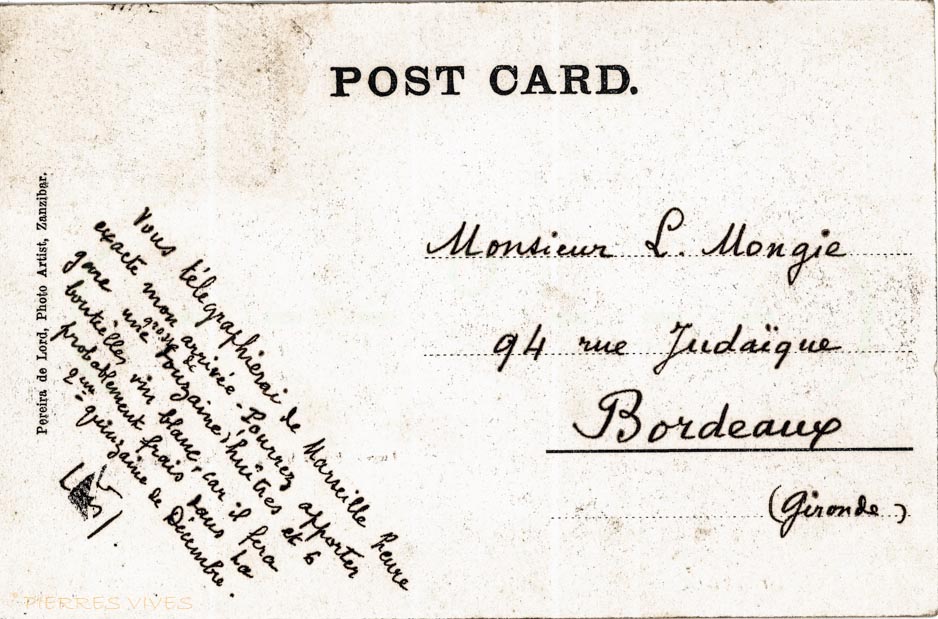 POST CARD.
Pereira de Lord, Photo Artist, Zanzibar.
Vous télégraphierai de Marseille heure
exacte mon arrivée - Pourrez apporter
gare une grosse douzaine d'huîtres et 6
bouteilles vin blanc, car il fera
probablement frais dans la
2me quinzaine de Décembre.
Monsieur L. Mongie
94 rue Judaïque
Bordeaux
(Gironde)
PIERRES VIVES